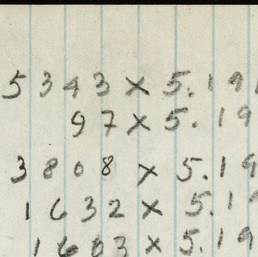 5343 × 5.19
97 × 5.19
3808 × 5.19
1632 × 5.1
1603 × 5.19